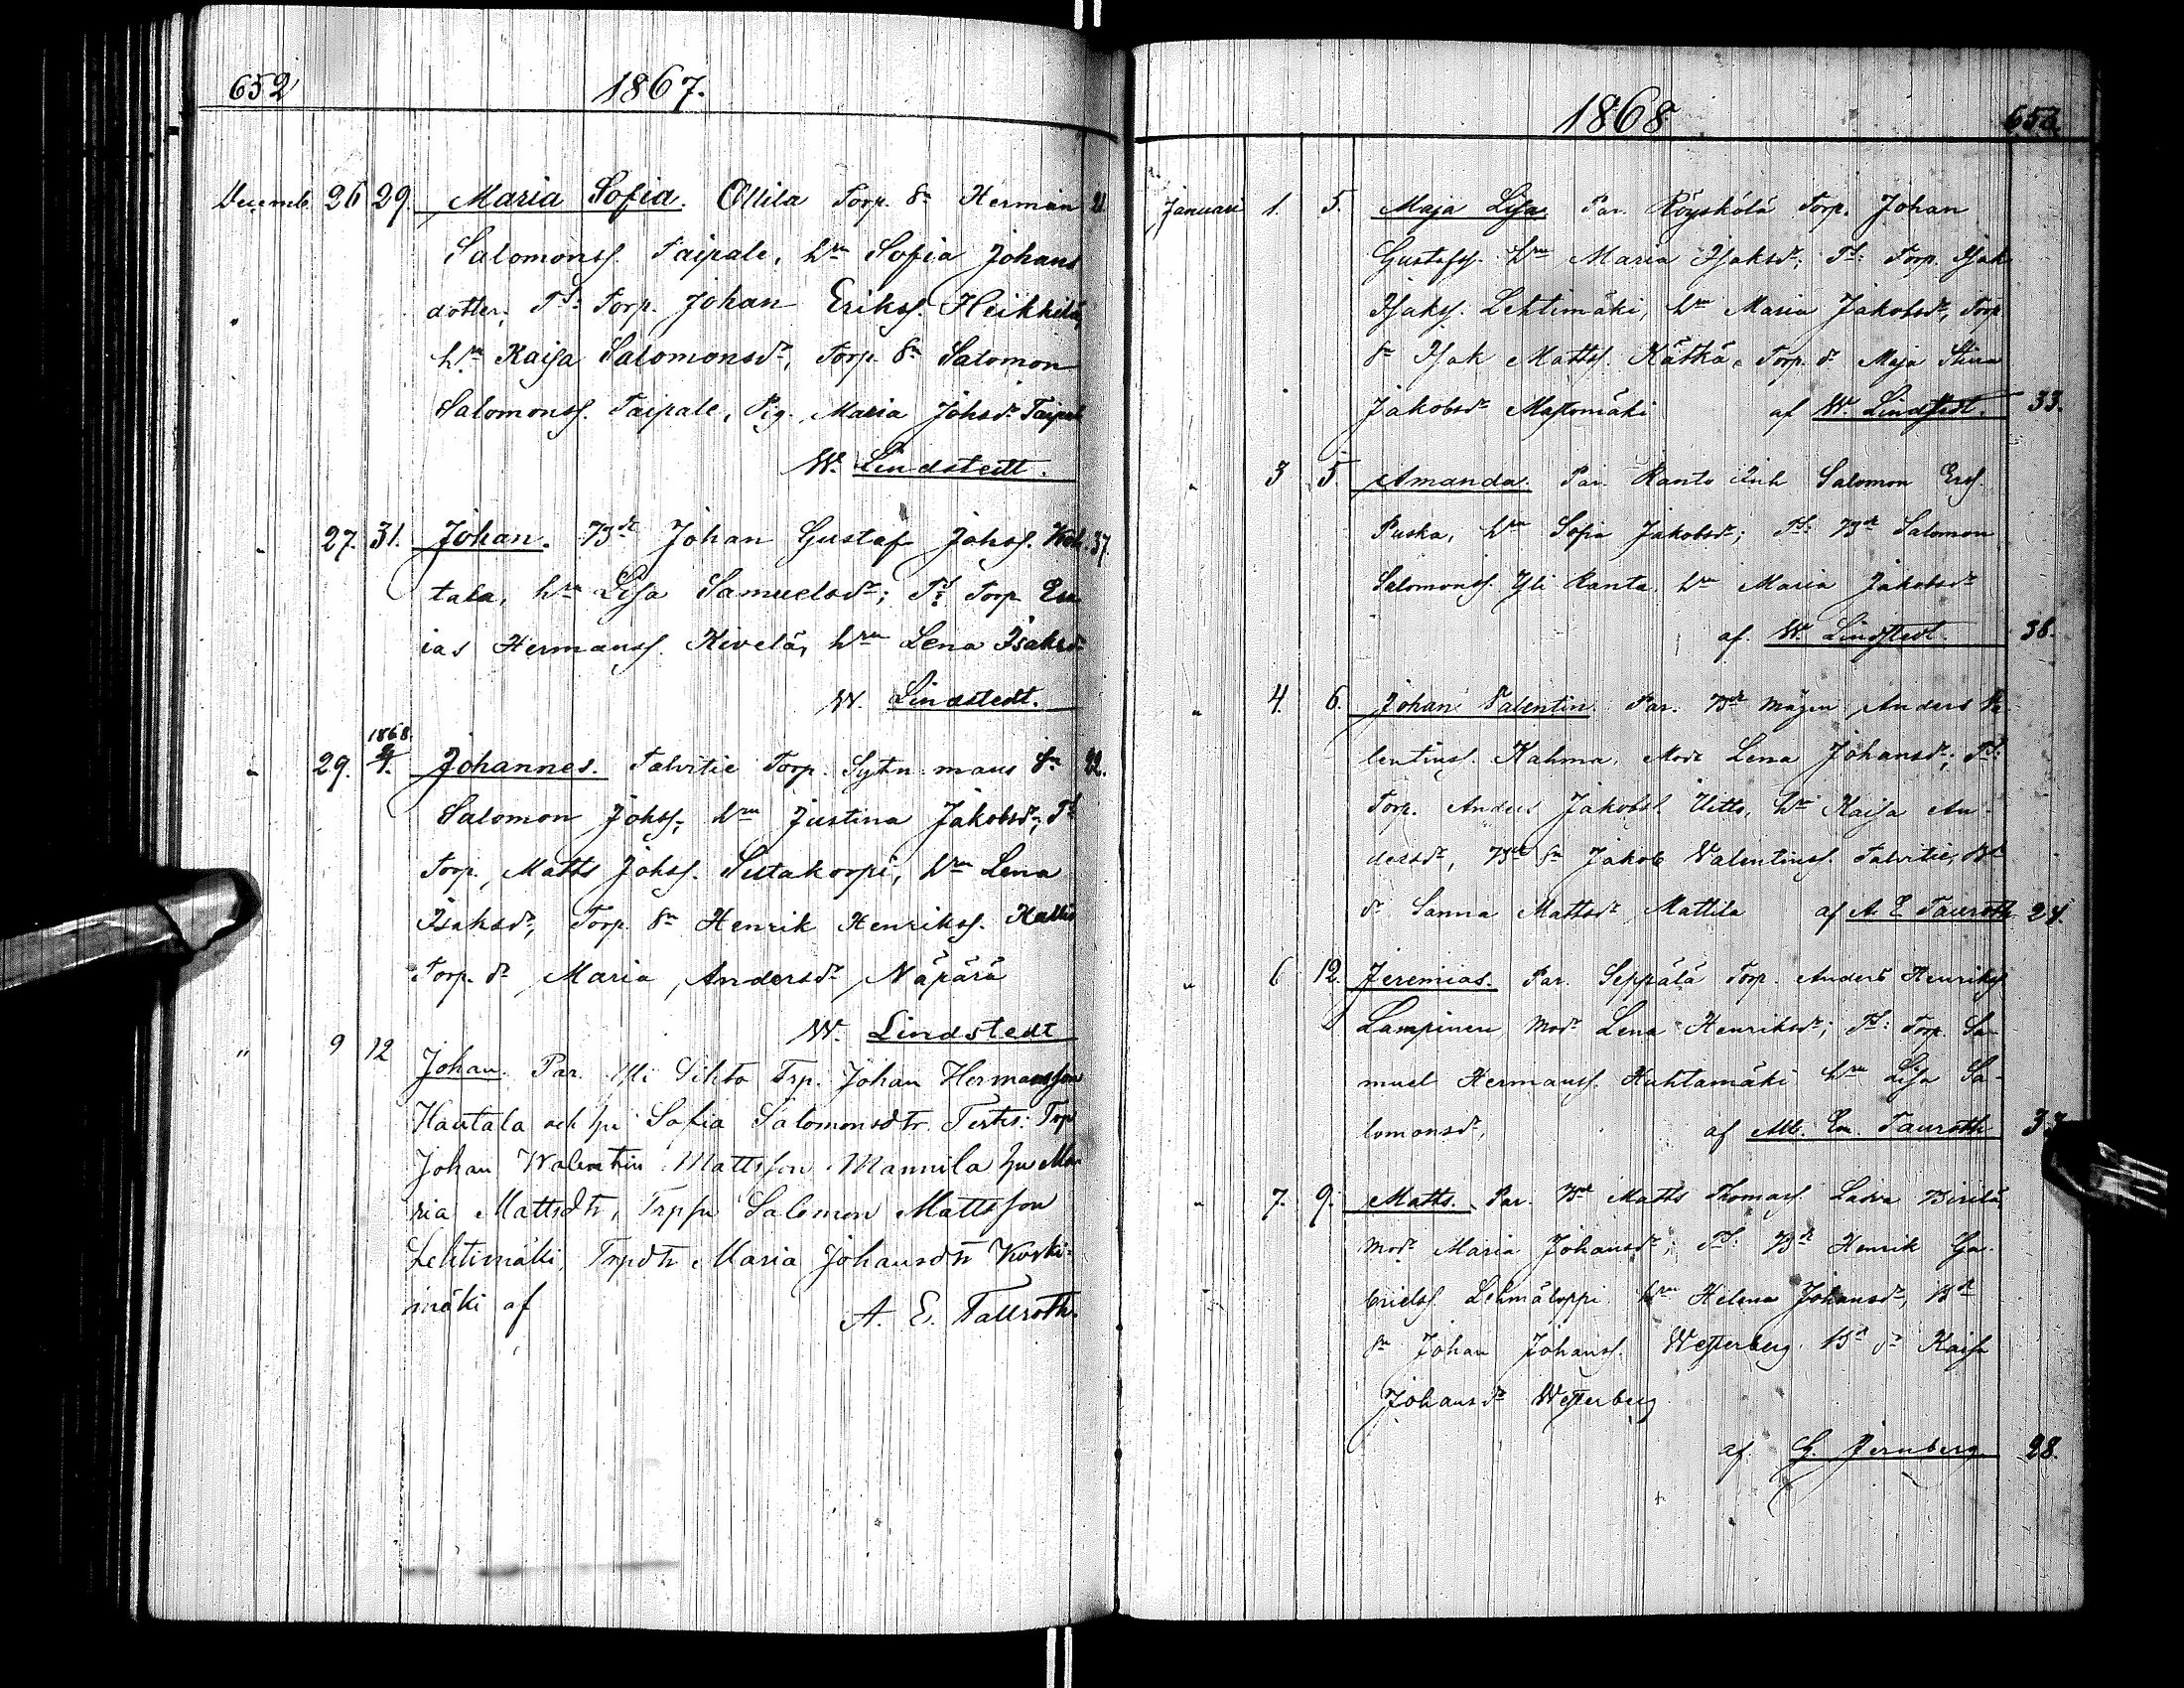 652 1867.
Decemb. 26 29. Maria Sofia. Ollila Torp. Sn Herman 21.
Salomonss. Taipale, hru Sofia Johans
dotter; Tt: Torp. Johan Erikss. Heikkilä,
hru Kaisa Salomonsdr, Torp. Sn Salomon
Salomonss. Taipale, Pig. Maria Johsdr Taipale
W. Lindstedt.
" 27. 31. Johan. Bde Johan Gustaf Johss. 37.
tala, hru Lisa Samuelsdr; Tt: Torp. Esa
ias Hermanss. Kivelä, hru Lena Isaksdr
W. Lindstedt.
1868.
" 29. 4. Johannes. Talvitie Torp. Sytn. mans Sn 22.
Salomon Johss; hru Justina Jakobsdr; Tt
Torp. Matts Johss. Sutakorpi, hru Lena
Isaksdr, Torp. Sn Henrik Henrikss. Kallio
Torp. dr Maria Andersdr Näpärä
W. Lindstedt
" 9 12 Johan. Par. Yli Sihto Trp. Johan Hermansson
Hautala och hu Sofia Salomonsdtr. Testes: Trp
Johan Walentin Mattsson Mannila hu Ma
ria Mattsdtr, Trpsn Salomon Mattsson
Lehtimäki, Trpdtr Maria Johansdtr Koski-
mäki af A. E. Tallroth.
1868 653.
Januari 1. 5. Maja Lisa. Par. Röyskölä Torp. Johan
Gustafss. hru Maria Isaksdr; Tt: Torp. Isak
Isakss. Lehtimäki, hru Maria Jakobsdr, Torp.
Sn Isak Mattss. Kätkä, Torp. dr Maja Stina
Jakobsdr Mastomäki af W. Lindstedt. 33.
" 3 5 Amanda. Par. Ranto Inh Salomon Erss.
Puska, hru Sofia Jakobsdr; Tt: Bde Salomon
Salomonss. Yli Ranta, hru Maria Jakobsdr
af W. Lindstedt. 38.
" 4. 6. Johan Valentin. Par. Bde mågen Anders Va
lentinss. Kahma, Modr Lena Johansdr; Tt:
Torp. Anders Jakobss. Uitto, hru Kaisa An-
dersdr, Bde Sn Jakob Valentinss. Talvitie, Bde
dr Sanna Mattsdr Mattila af A. E. Tauroth 24.
" 6 12. Jeremias. Par. Seppälä Torp. Anders Henrikss
Lampinen, Modr Lena Henriksdr; Tt: Torp. Sa-
muel Hermanss. Huhtamäki hru Lisa Sa-
lomonsdr, af Alb. Em. Tauroth
" 7. 9. Matts. Par. Bde Matts Thomass. Laiva
Modr Maria Johansdr; Tt: Bde Henrik Ga-
brielss. Lehmäloppi hru Helena Johansdr, Bde
Sn Johan Johanss. Westerberg. Bde dr Kaisa
Johansdr Westerberg
af G. Jernberg 28.